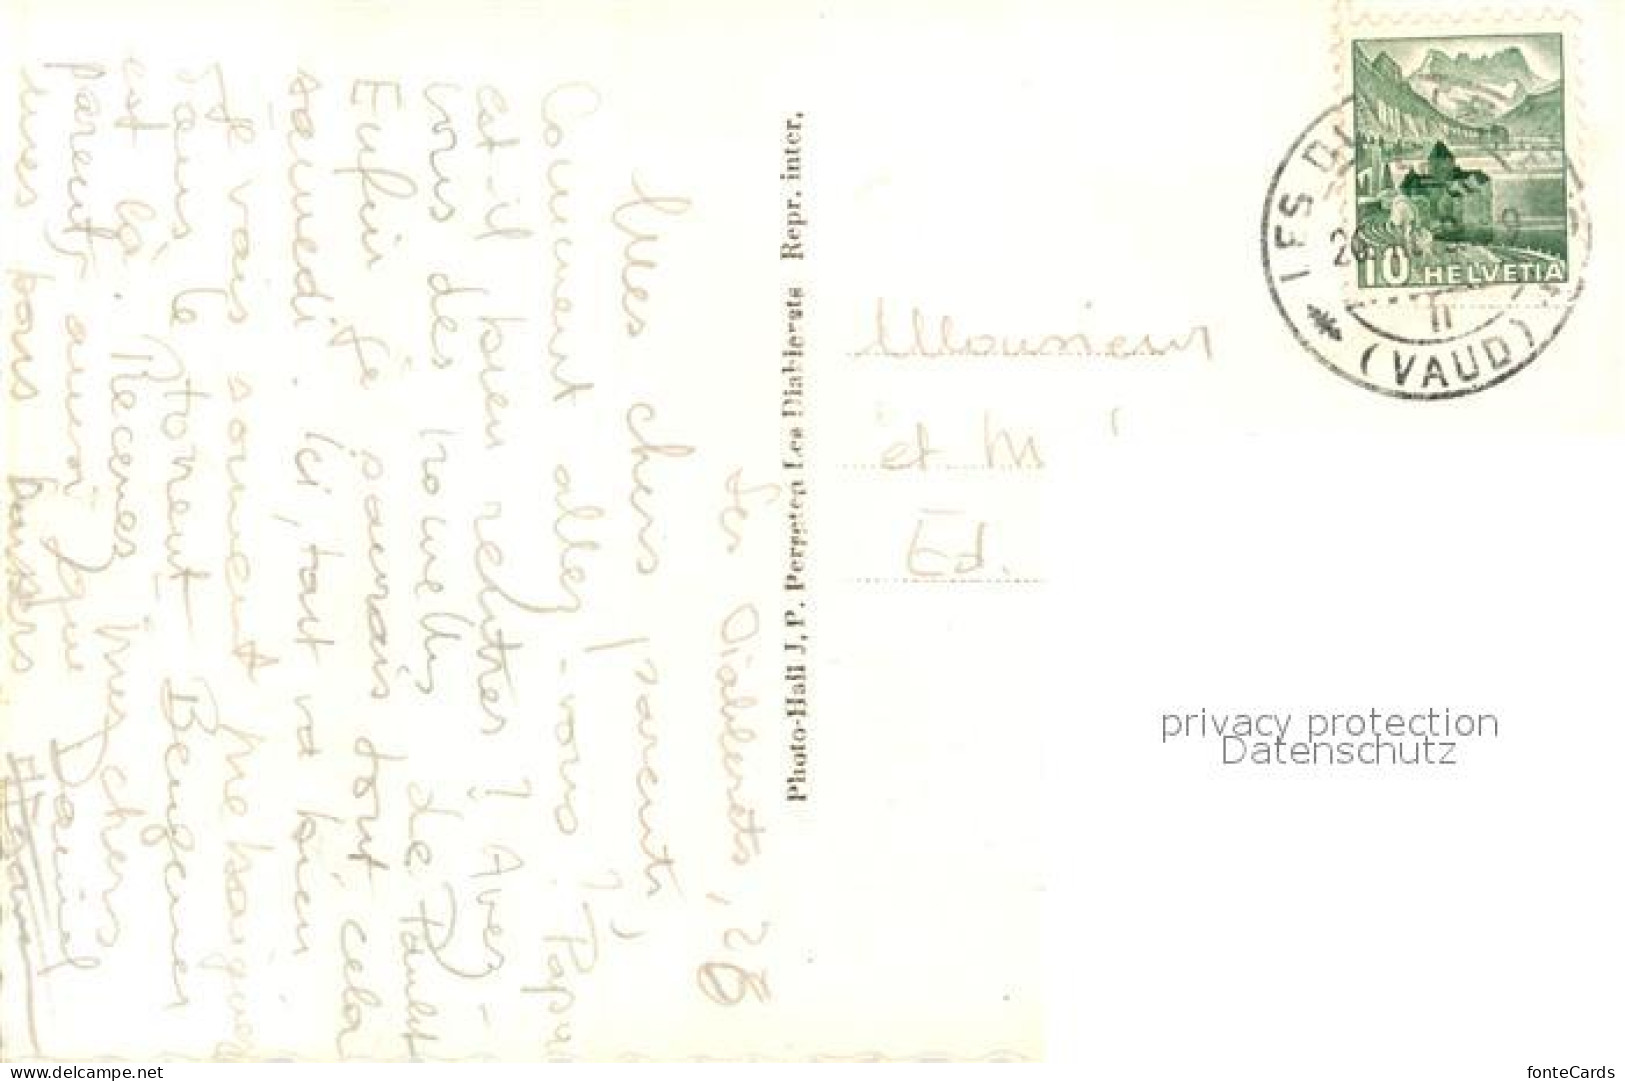 Les Diablerets, 28
Mes chers parents,
Comment allez-vous? Papa
est-il bien rentré? Avez-
vous des nouvelles de Paulet
Enfin je saurais tout cela
samedi. Ici, tout va bien
Je vais souvent me baigner
dans le torrent. Benjamin
est là. Recevez mes chers
parents ainsi que Daniel
mes bons baisers
Photo-Hall J. P. Perreten Les Diablerets Repr. inter.
Monsieur
et M
Ed.
10 HELVETIA
LES DI
(VAUD)
privacy protection
Datenschutz
www.delcampe.net
fonteCards